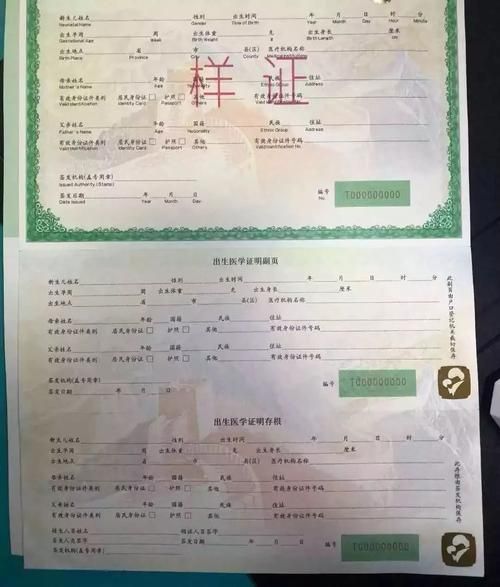 新生儿姓名 性别 出生时间 年 月 日 时 分
Neonatal Name Gender Time of Birth Year Month Day Hour Minute
出生孕周 周 出生体重 克 出生身长 厘米
Gestational Age Week Birth Weight g Birth Length cm
出生地点 省 市 县(区) 医疗机构名称
Birth Place Province City County
样证
母亲姓名 年龄 国籍 民族 住址
Mother's Name Age Nationality Ethnic Group Address
有效身份证件类别 居民身份证 护照 其他 有效身份证件号码
Valid Identification Identity Card Passport Others Valid Identification No.
父亲姓名 年龄 国籍 民族 住址
Father's Name Age Nationality Ethnic Group Address
有效身份证件类别 居民身份证 护照 其他 有效身份证件号码
Valid Identification Identity Card Passport Others Valid Identification No.
签发机构(盖专用章)
Issued Authority (Stamp)
签发日期 年 月 日 编号 T000000000
Date Issued Year Month Day No.
出生医学证明副页
新生儿姓名 性别 出生时间 年 月 日 时 分
出生孕周 周 出生体重 克 出生身长 厘米
出生地点 省 市 县(区) 医疗机构名称
母亲姓名 年龄 国籍 民族 住址
有效身份证件类别 居民身份证 护照 其他 有效身份证件号码
父亲姓名 年龄 国籍 民族 住址
有效身份证件类别 居民身份证 护照 其他 有效身份证件号码
签发机构(盖专用章)
签发日期 年 月 日 编号 T000000000
此副页由户口登记机关裁切保存
出生医学证明存根
新生儿姓名 性别 出生时间 年 月 日 时 分
出生孕周 周 出生体重 克 出生身长 厘米
出生地点 省 市 县(区) 医疗机构名称
母亲姓名 年龄 国籍 民族 住址
有效身份证件类别 居民身份证 护照 其他 有效身份证件号码
父亲姓名 年龄 国籍 民族 住址
有效身份证件类别 居民身份证 护照 其他 有效身份证件号码
接生人员姓名 领证人员签字
签发人员签字 签发日期 年 月 日 编号 T000000000
签发机构(盖专用章)
此存根由签发机构保存